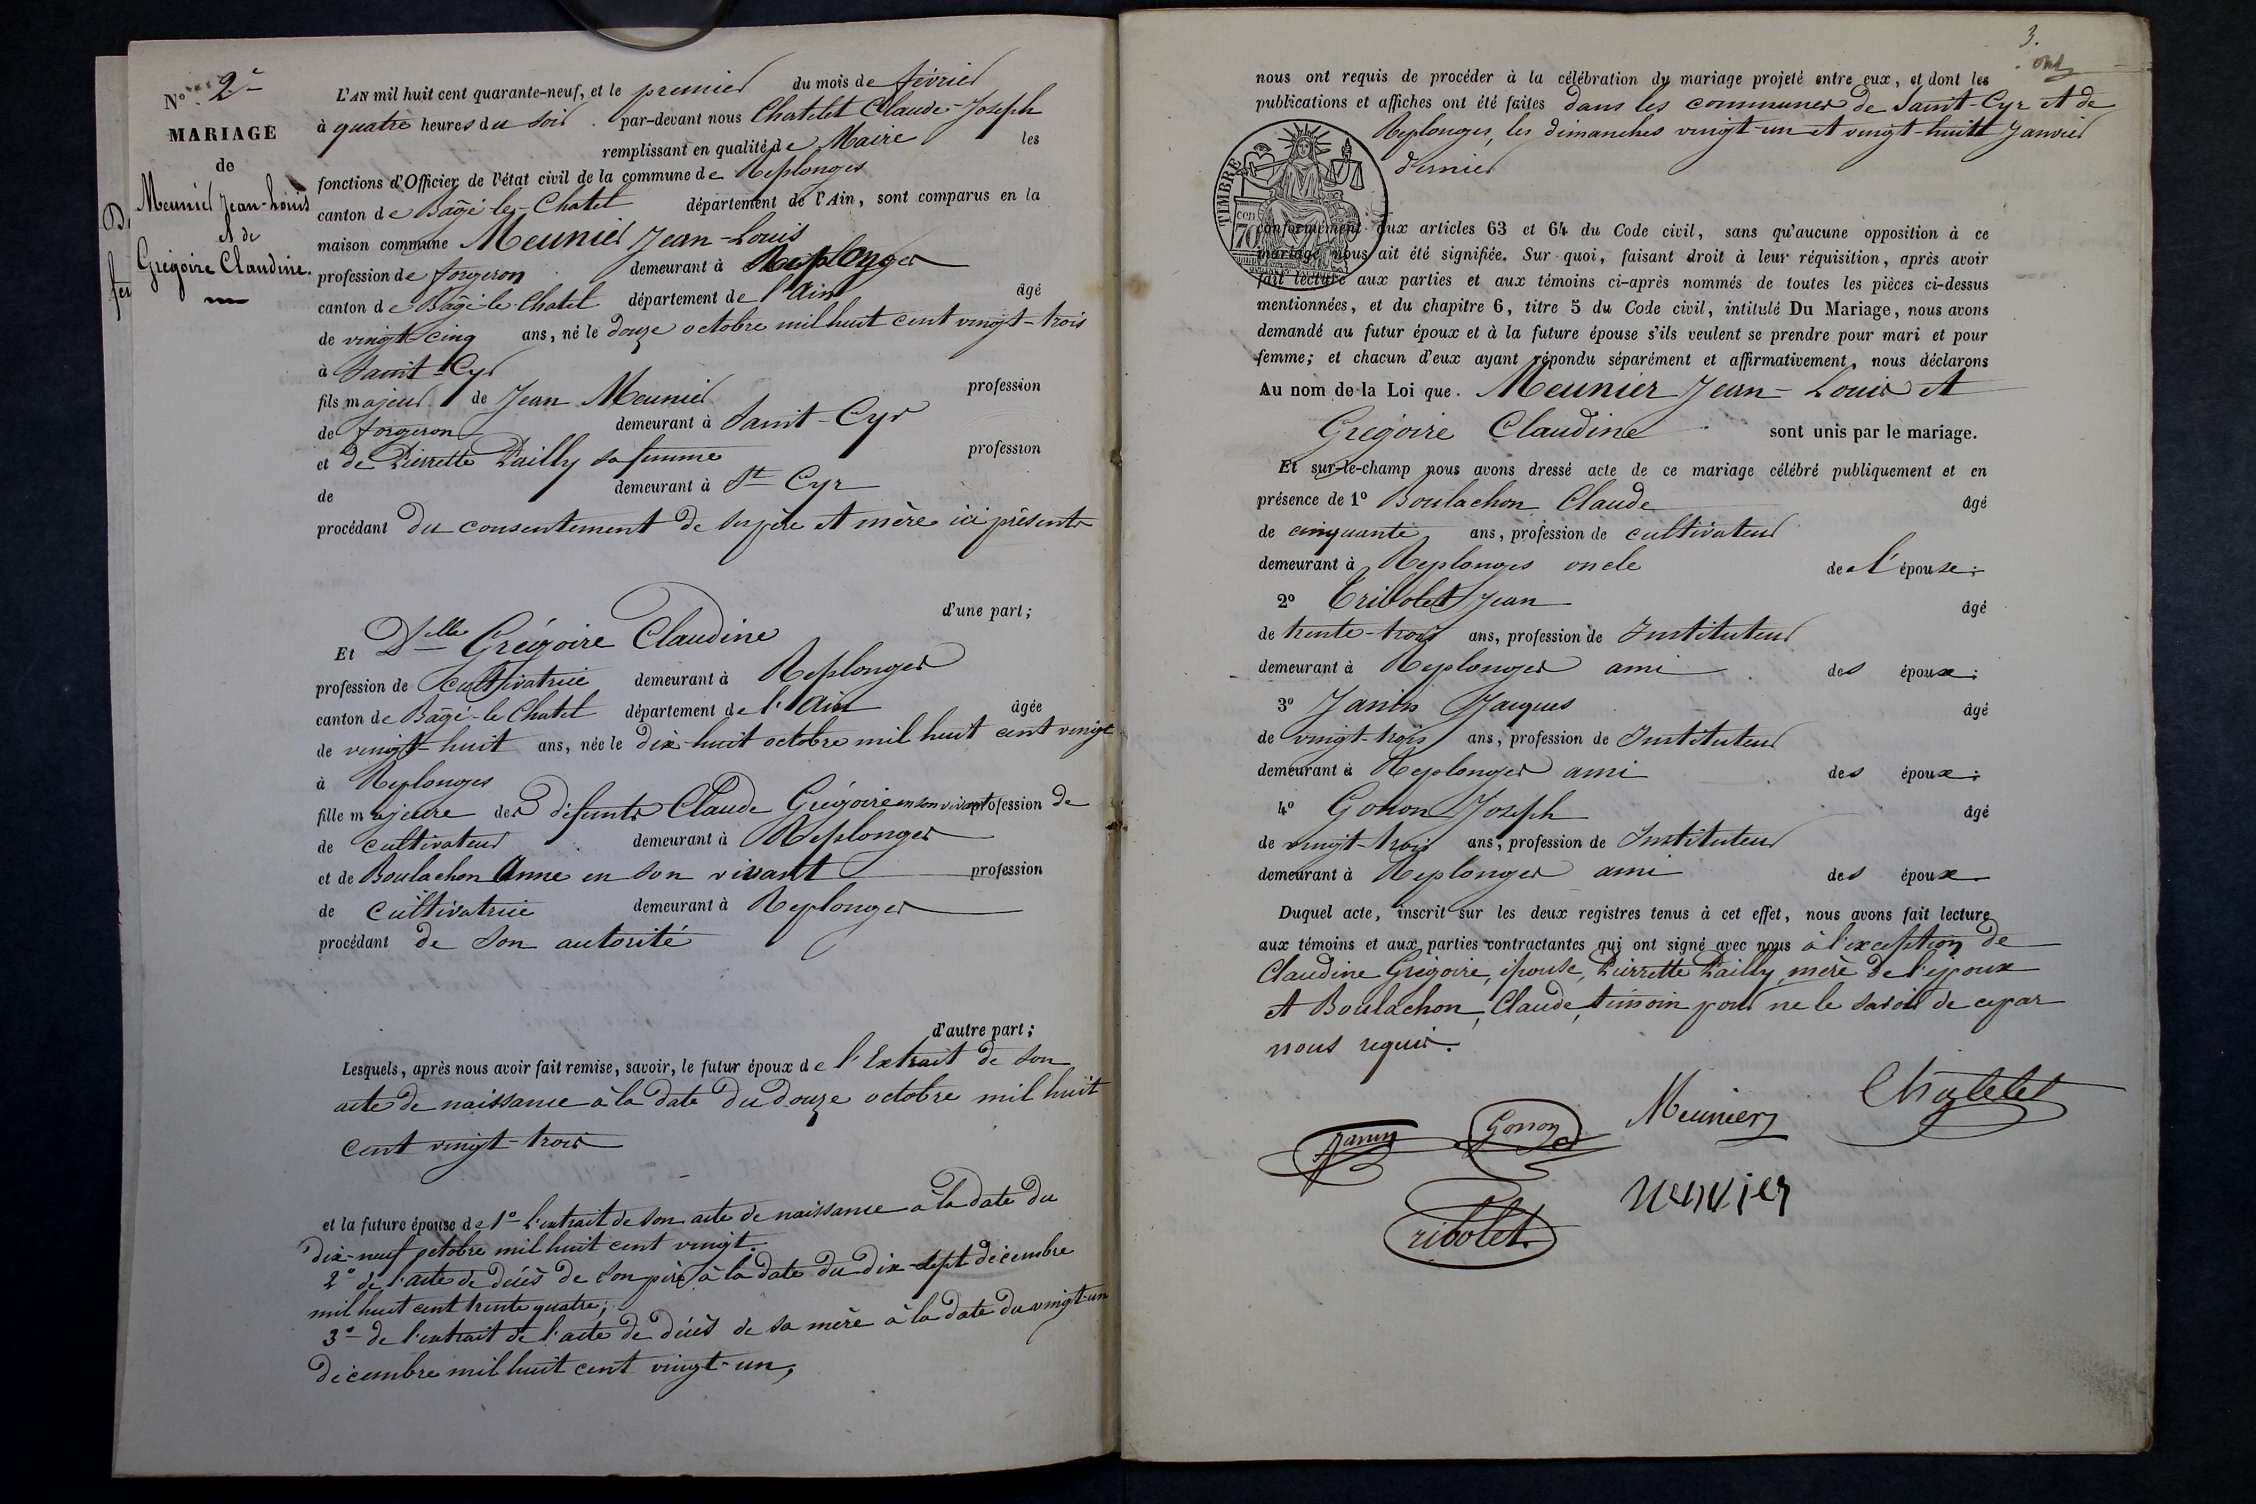 N° 2e
MARIAGE
de
Meunier Jean-Louis
et de
Grégoire Claudine.
L'AN mil huit cent quarante-neuf, et le premier du mois de février
à quatre heures du soir par-devant nous Chatelet Claude-Joseph
remplissant en qualité de Maire les
fonctions d'Officier de l'état civil de la commune de Replonges
canton de Bâgé-le-Chatel département de l'Ain, sont comparus en la
maison commune Meunier Jean-Louis
profession de forgeron demeurant à Replonges
canton de Bâgé-le-Chatel département de l'Ain âgé
de vingt-cinq ans, né le douze octobre mil huit cent vingt-trois
à Saint-Cyr
fils majeur de Jean Meunier profession
de forgeron demeurant à Saint-Cyr
et de Pierrette Pailly sa femme profession
de demeurant à St Cyr
procédant du consentement de ses père et mère ici présents
d'une part;
Et Dlle Grégoire Claudine
profession de cultivatrice demeurant à Replonges
canton de Bâgé-le-Chatel département de l'Ain âgée
de vingt-huit ans, née le dix-huit octobre mil huit cent vingt
à Replonges
fille majeure des défunts Claude Grégoire en son vivant profession de
de cultivateur demeurant à Replonges
et de Boulachon Anne en son vivant profession
de cultivatrice demeurant à Replonges
procédant de son autorité
d'autre part;
Lesquels, après nous avoir fait remise, savoir, le futur époux de l'Extrait de son
acte de naissance à la date du douze octobre mil huit
cent vingt-trois
et la future épouse de 1° l'extrait de son acte de naissance à la date du
dix-neuf octobre mil huit cent vingt.
2° de l'acte de décès de son père à la date du dix-sept décembre
mil huit cent trente quatre;
3° de l'extrait de l'acte de décès de sa mère à la date du vingt-un
décembre mil huit cent vingt-un,
3.
nous ont requis de procéder à la célébration du mariage projeté entre eux, et dont les
publications et affiches ont été faites dans les communes de Saint-Cyr et de
Replonges, les dimanches vingt-un et vingt-huit Janvier
dernier
TIMBRE
70 cen
conformément aux articles 63 et 64 du Code civil, sans qu'aucune opposition à ce
mariage nous ait été signifiée. Sur quoi, faisant droit à leur réquisition, après avoir
fait lecture aux parties et aux témoins ci-après nommés de toutes les pièces ci-dessus
mentionnées, et du chapitre 6, titre 5 du Code civil, intitulé Du Mariage, nous avons
demandé au futur époux et à la future épouse s'ils veulent se prendre pour mari et pour
femme; et chacun d'eux ayant répondu séparément et affirmativement, nous déclarons
Au nom de la Loi que. Meunier Jean-Louis et
Grégoire Claudine sont unis par le mariage.
Et sur-le-champ nous avons dressé acte de ce mariage célébré publiquement et en
présence de 1° Boulachon Claude âgé
de cinquante ans, profession de cultivateur
demeurant à Replonges oncle de l'épouse;
2° Tribolet Jean âgé
de trente-trois ans, profession de Instituteur
demeurant à Replonges ami des époux;
3° Janin Jacques âgé
de vingt-trois ans, profession de Instituteur
demeurant à Replonges ami des époux;
4° Gonon Joseph âgé
de vingt-trois ans, profession de Instituteur
demeurant à Replonges ami des époux
Duquel acte, inscrit sur les deux registres tenus à cet effet, nous avons fait lecture
aux témoins et aux parties contractantes qui ont signé avec nous à l'exception de
Claudine Grégoire, épouse, Pierrette Pailly mère de l'époux
et Boulachon, Claude, témoin pour ne le savoir de ce par
nous requis.
Janin Gonon Meunier Chatelet
menvier
Tribolet.